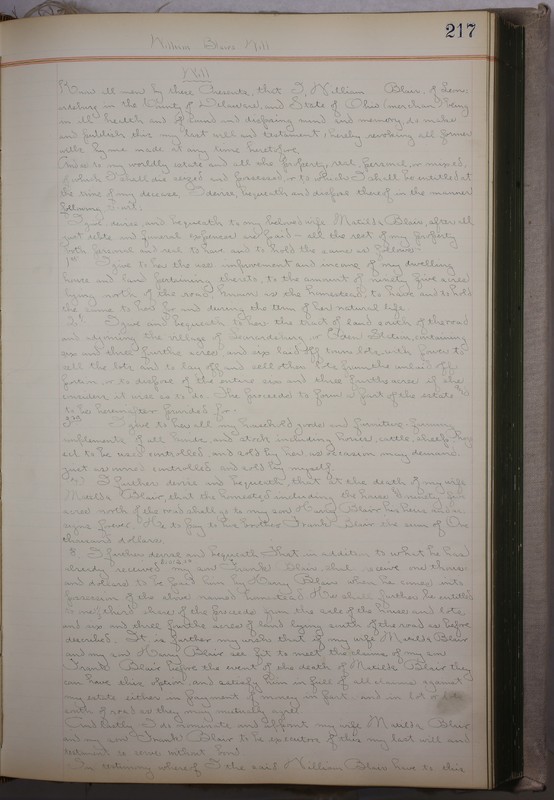 217
William Blair Will
Will
Know all men by these Presents, that I, William Blair, of
in the County of Delaware, and State of Ohio (merchant) being
in ill health and of sound and disposing mind and memory, do make
and publish this my last will and testament, hereby revoking all former
wills by me made at any time heretofore.
And as to my worldly estate and all the property, real, personal, or mixed,
of which I shall die seized and possessed, or to which I shall be entitled at
the time of my decease I devise, bequeath and dispose thereof in the manner
following to wit:
I give devise, and bequeath to my beloved wife Matilda Blair, after all
just debts and funeral expenses are paid - all the rest of my property
both personal and real to have and to hold the same as follows:
1st I give to her the use improvement and income of my dwelling
house and land pertaining thereto, to the amount of ninety five acres
lying north of the road, known as the homestead, to have and to hold
the same to her for and during the term of her natural life.
2d I give and bequeath to her the tract of land south of the road
and adjoining the village of or Eden Station, containing
six and three fourths acres and six laid off town lots, with power to
sell the lots and to lay off and sell other lots from the unlaid off
portion, or to dispose of the entire six and three fourths acres if she
considers it wise so to do. The proceeds to form a part of the estate
to be hereinafter provided for.
3rd I give to her all my household goods and furniture, farming
implements of all kinds, and stock including horses, cattle, sheep, hogs
to be used controlled, and sold by her as occasion may demand
just as owned controlled and sold by myself.
I further devise and bequeath, that at the death of my wife
Matilda Blair, that the homestead including the house & ninety five
acres north of the road shall go to my son Harry Blair his heirs and
assigns forever. He to pay to his brother Frank Blair the sum of One
thousand dollars.
I further devise and bequeath that in addition to what he has
already received my son Frank Blair shall receive one thous-
and dollars to be paid him by Harry Blair when he comes into
possession of the above named homestead. He shall further be entitled
to one third share of the proceeds from the sale of the houses and lots
and six and three fourths acres of land lying south of the road as before
described. It is further my wish that if my wife Matilda Blair
and my son Harry Blair see fit to meet the claims of my son
Frank Blair before the event of the death of Matilda Blair they
can have this option, and satisfy him in full of all claims against
my estate either in payment of money in part, and in lot or lots
south of road as they may mutually agree.
And lastly I do nominate and appoint my wife Matilda Blair
and my son Frank Blair to be executors of this my last will and
testament to serve without bond.
In testimony whereof I the said William Blair have to this